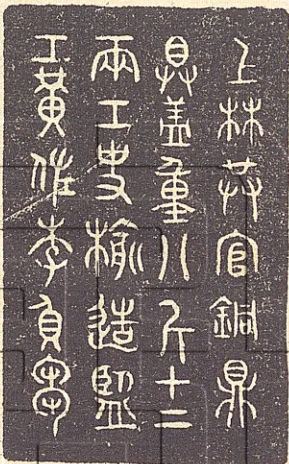 上林共官銅鼎
具盖重八斤十二
兩工史榆造監
工黃佐李負芻